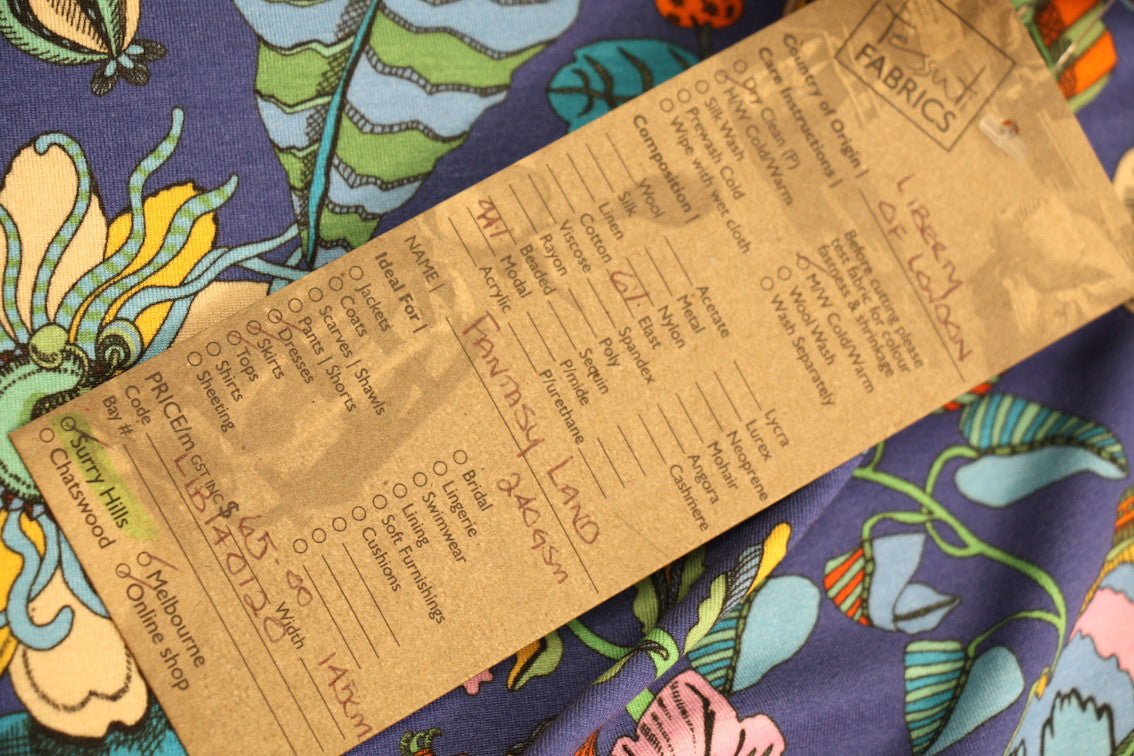 Tessuti
FABRICS
LIBERTY
OF LONDON
Country of Origin |
Care Instructions |
Before cutting please
test fabric for colour
fastness & shrinkage
Dry Clean (P)
H/W Cold/Warm
Silk Wash
Prewash Cold
Wipe with wet cloth
M/W Cold/Warm
Wool Wash
Wash Separately
Composition |
Wool
Silk
Linen
Cotton
Viscose
Rayon
Beaded
94% Modal
Acrylic
Acetate
Metal
Nylon
6% Elast
Spandex
Poly
Sequin
P/mide
P/urethane
Lycra
Lurex
Neoprene
Mohair
Angora
Cashmere
NAME | FANTASY LAND
240gsm
Ideal For |
Jackets
Coats
Scarves | Shawls
Pants | Shorts
Dresses
Skirts
Tops
Shirts
Sheeting
Bridal
Lingerie
Swimwear
Lining
Soft Furnishings
Cushions
PRICE/m GST INC $ 65.00 Width 145cm
Code LIB140T20
Bay #
Surry Hills
Chatswood
Melbourne
Online shop